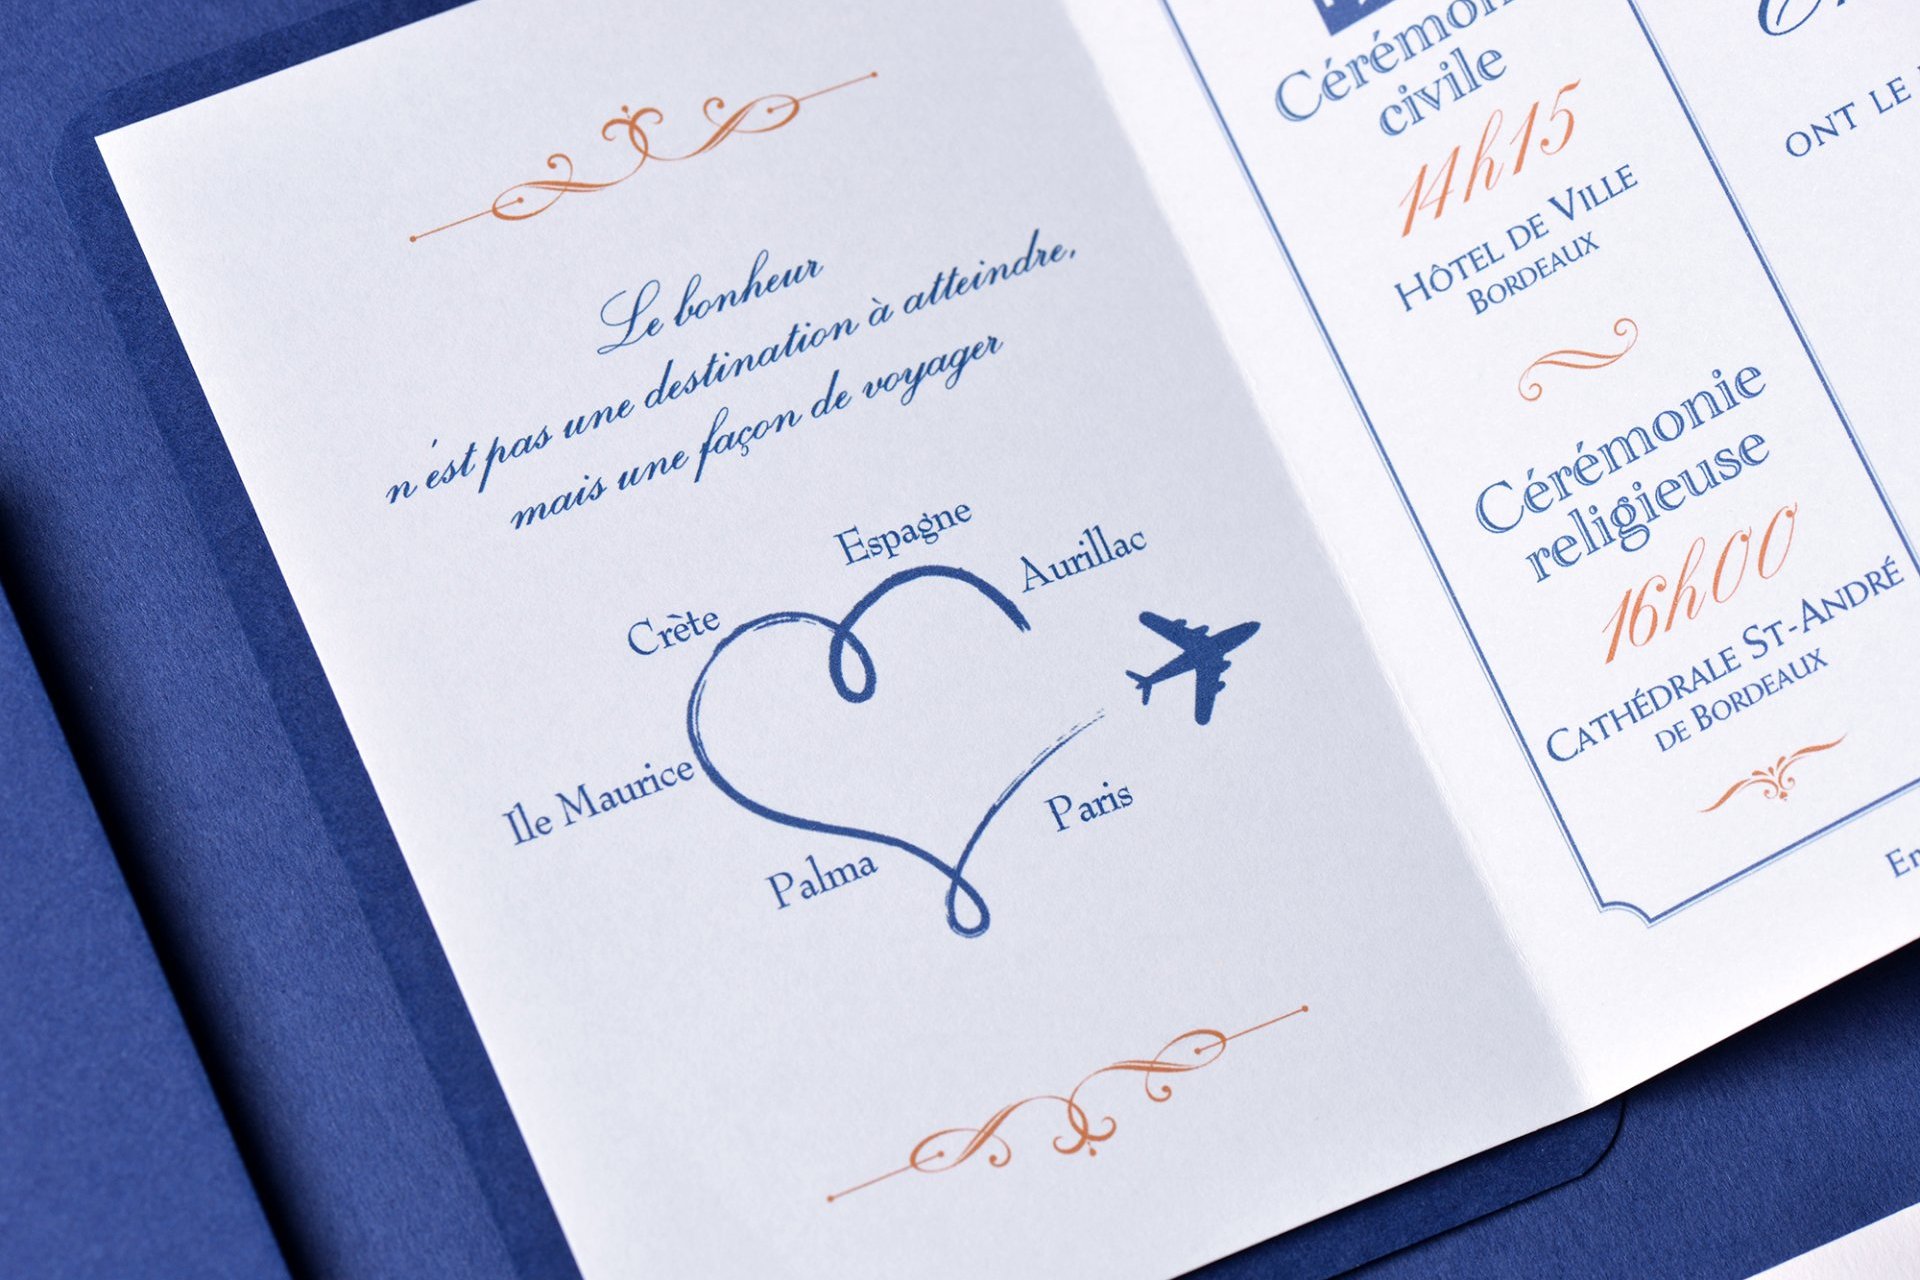 Le bonheur
n'est pas une destination à atteindre,
mais une façon de voyager
Espagne
Aurillac
Crète
Ile Maurice
Palma
Paris
Cérémonie
civile
14h15
HÔTEL DE VILLE
BORDEAUX
Cérémonie
religieuse
16h00
CATHÉDRALE ST-ANDRÉ
DE BORDEAUX
ONT LE